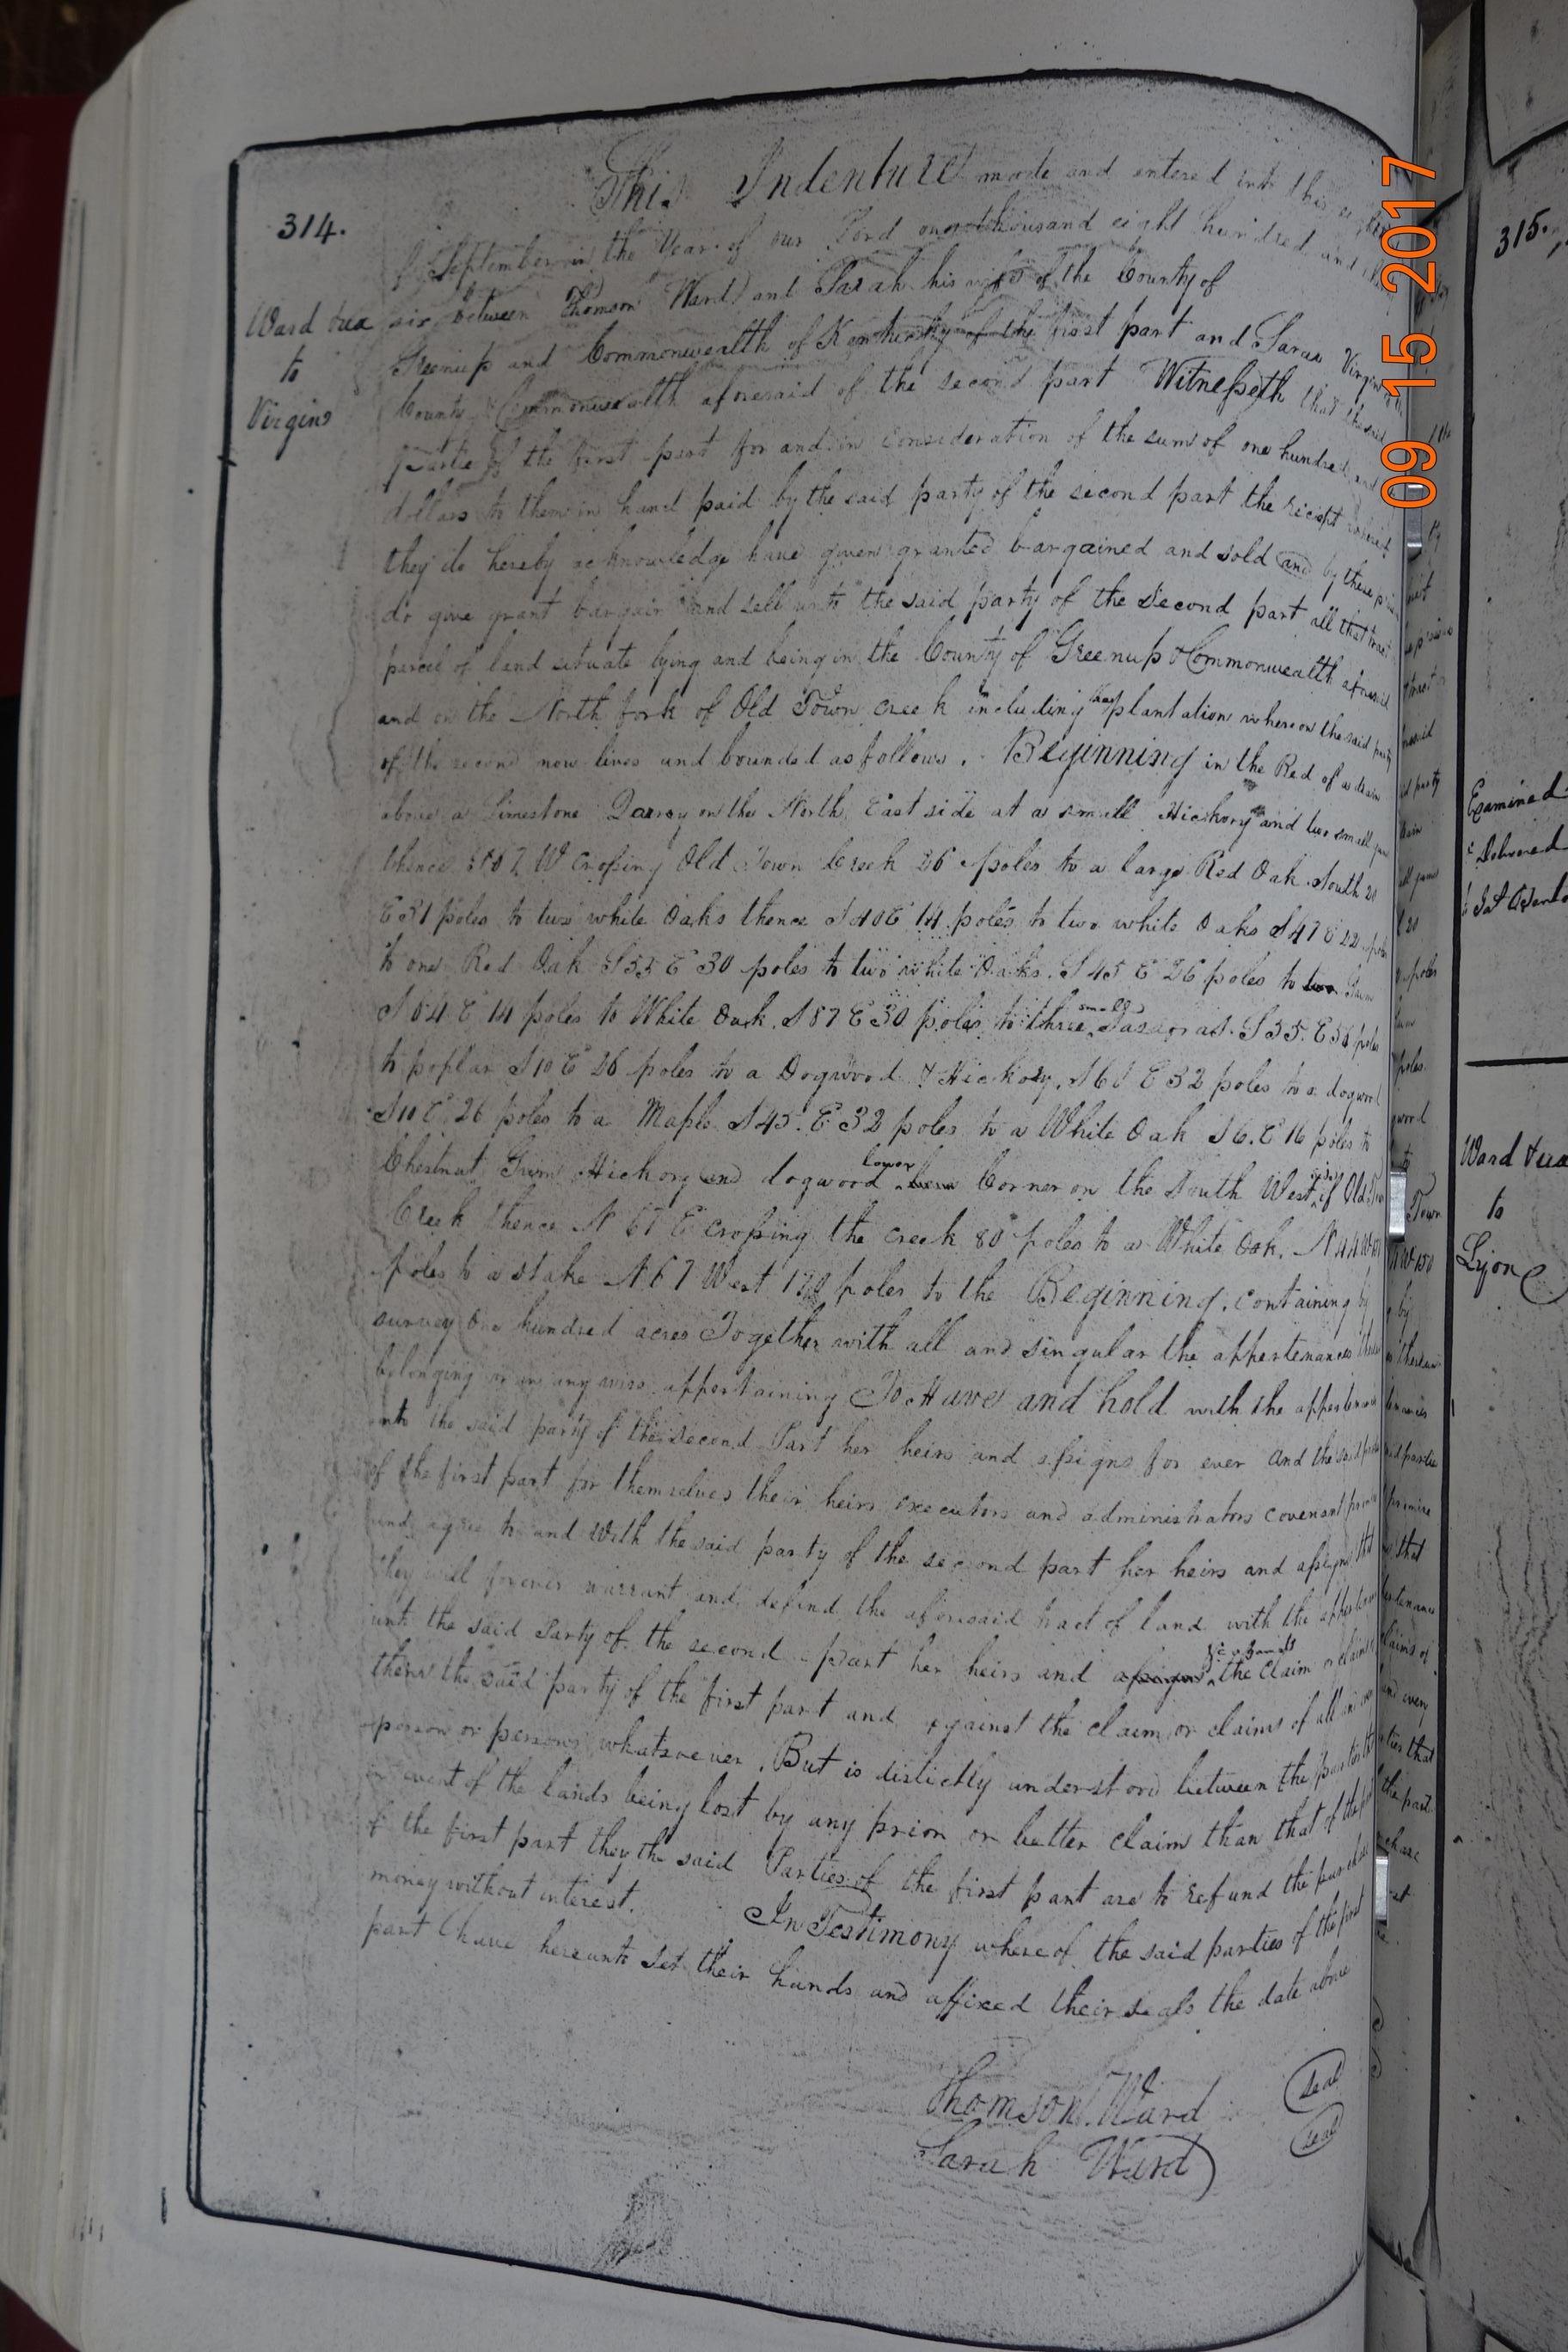 314.
This Indenture made and entered into this
of September in the Year of our Lord one thousand eight hundred and
Ward & ux
to
Virgins
six between Thomson Ward and Sarah his wife of the County of
Greenup and Commonwealth of Kentucky of the first part and Sarah Virgin
County & Commonwealth aforesaid of the second part Witnesseth that the said
Partie of the first part for and in Consideration of the sum of one hundred
dollars to them in hand paid by the said party of the second part the receipt
they do hereby acknowledge have given granted bargained and sold and by these
do give grant bargain and sell unto the said party of the second part all that tract
parcel of land situate lying and being in the County of Greenup & Commonwealth aforesaid
and on the North fork of Old Town creek including the plantation whereon the said party
of the second now lives and bounded as follows. Beginning in the Red of a drain
above a Limestone Quarry on the North East side at a small Hickory and two small
thence S 67 W Crossing Old Town Creek 26 poles to a large Red Oak South 20
E 31 poles to two white Oaks thence S 40 E 14 poles to two white Oaks S 47 E 22 poles
to one Red Oak S 55 E 30 poles to two white Oaks. S 45 E 26 poles to
S 64 E 14 poles to White Oak. S 87 E 30 poles to three small Sassafras. S 55. E 56 poles
to poplar S 10 E 26 poles to a Dogwood & Hickory. S 60 E 32 poles to a dogwood
S 10 E 26 poles to a Maple S 45. E 32 poles to a White Oak S 6. E 16 poles to
Chestnut Gum Hickory and dogwood lower Corner on the South West side of Old Town
Creek thence N 67 E crossing the creek 80 poles to a White Oak. N 44 W 150
poles to a stake N 67 West poles to the Beginning. containing by
survey One hundred acres Together with all and singular the appertenances
belonging or in any wise appertaining To Have and hold with the appertenances
unto the said party of the second Part her heirs and assigns for ever and the said parties
of the first part for themselves their heirs executors and administrators covenant promise
and agree to and with the said party of the second part her heirs and assigns that
they will forever warrant and defend the aforesaid tract of land with the appertenances
unto the said Party of the second part her heirs and assigns the Claim or claims of
them the said party of the first part and against the claim or claims of all and every
person or persons whatsoever. But is distictly understood between the parties that
in event of the lands being lost by any prior or better claim than that of the part
of the first part they the said Parties of the first part are to refund the purchase
money without interest. In Testimony whereof the said parties of the first
part have hereunto set their hands and affixed their seals the date above
Thomson Ward seal
Sarah Ward seal
315.
Examined
Delivered
Ward & ux
to
Lyon
09 15 2017